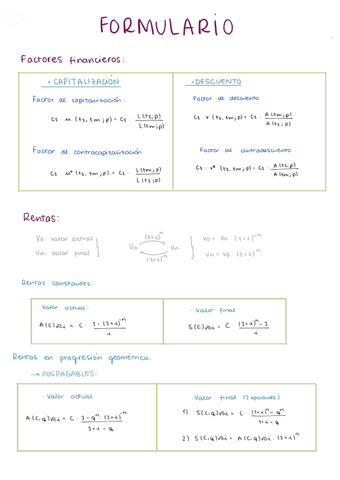 FORMULARIO
Factores financieros:
· CAPITALIZACIÓN
Factor de capitalización:
C₁ · u (t₁, tm; p) = C₁ · L(t₁; p) / L(tm; p)
Factor de contracapitalización
C₁ · u* (t₁, tm; p) = C₁ · L(tm; p) / L(t₁; p)
· DESCUENTO
Factor de descuento
C₁ · v (t₁, tm; p) = C₁ · A(tm; p) / A(t₁; p)
Factor de contradescuento
C₁ · v* (t₁, tm; p) = C₁ · A(t₁; p) / A(tm; p)
Rentas:
V₀: valor actual
Vn: valor final
V₀ (1+i)ⁿ Vn (1+i)⁻ⁿ
V₀ = Vn · (1+i)⁻ⁿ
Vn = V₀ · (1+i)ⁿ
Rentas constantes:
· Valor actual:
A(C)n̅|i = C · 1 - (1+i)⁻ⁿ / i
· Valor final
S(C)n̅|i = C · (1+i)ⁿ - 1 / i
Rentas en progresión geométrica:
→ POSPAGABLES:
· Valor actual
A(C,q)n̅|i = C · 1 - qⁿ · (1+i)⁻ⁿ / 1+i - q
· Valor final (2 opciones)
1) S(C,q)n̅|i = C · (1+i)ⁿ - qⁿ / 1+i - q
2) S(C,q)n̅|i = A(C,q)n̅|i · (1+i)ⁿ